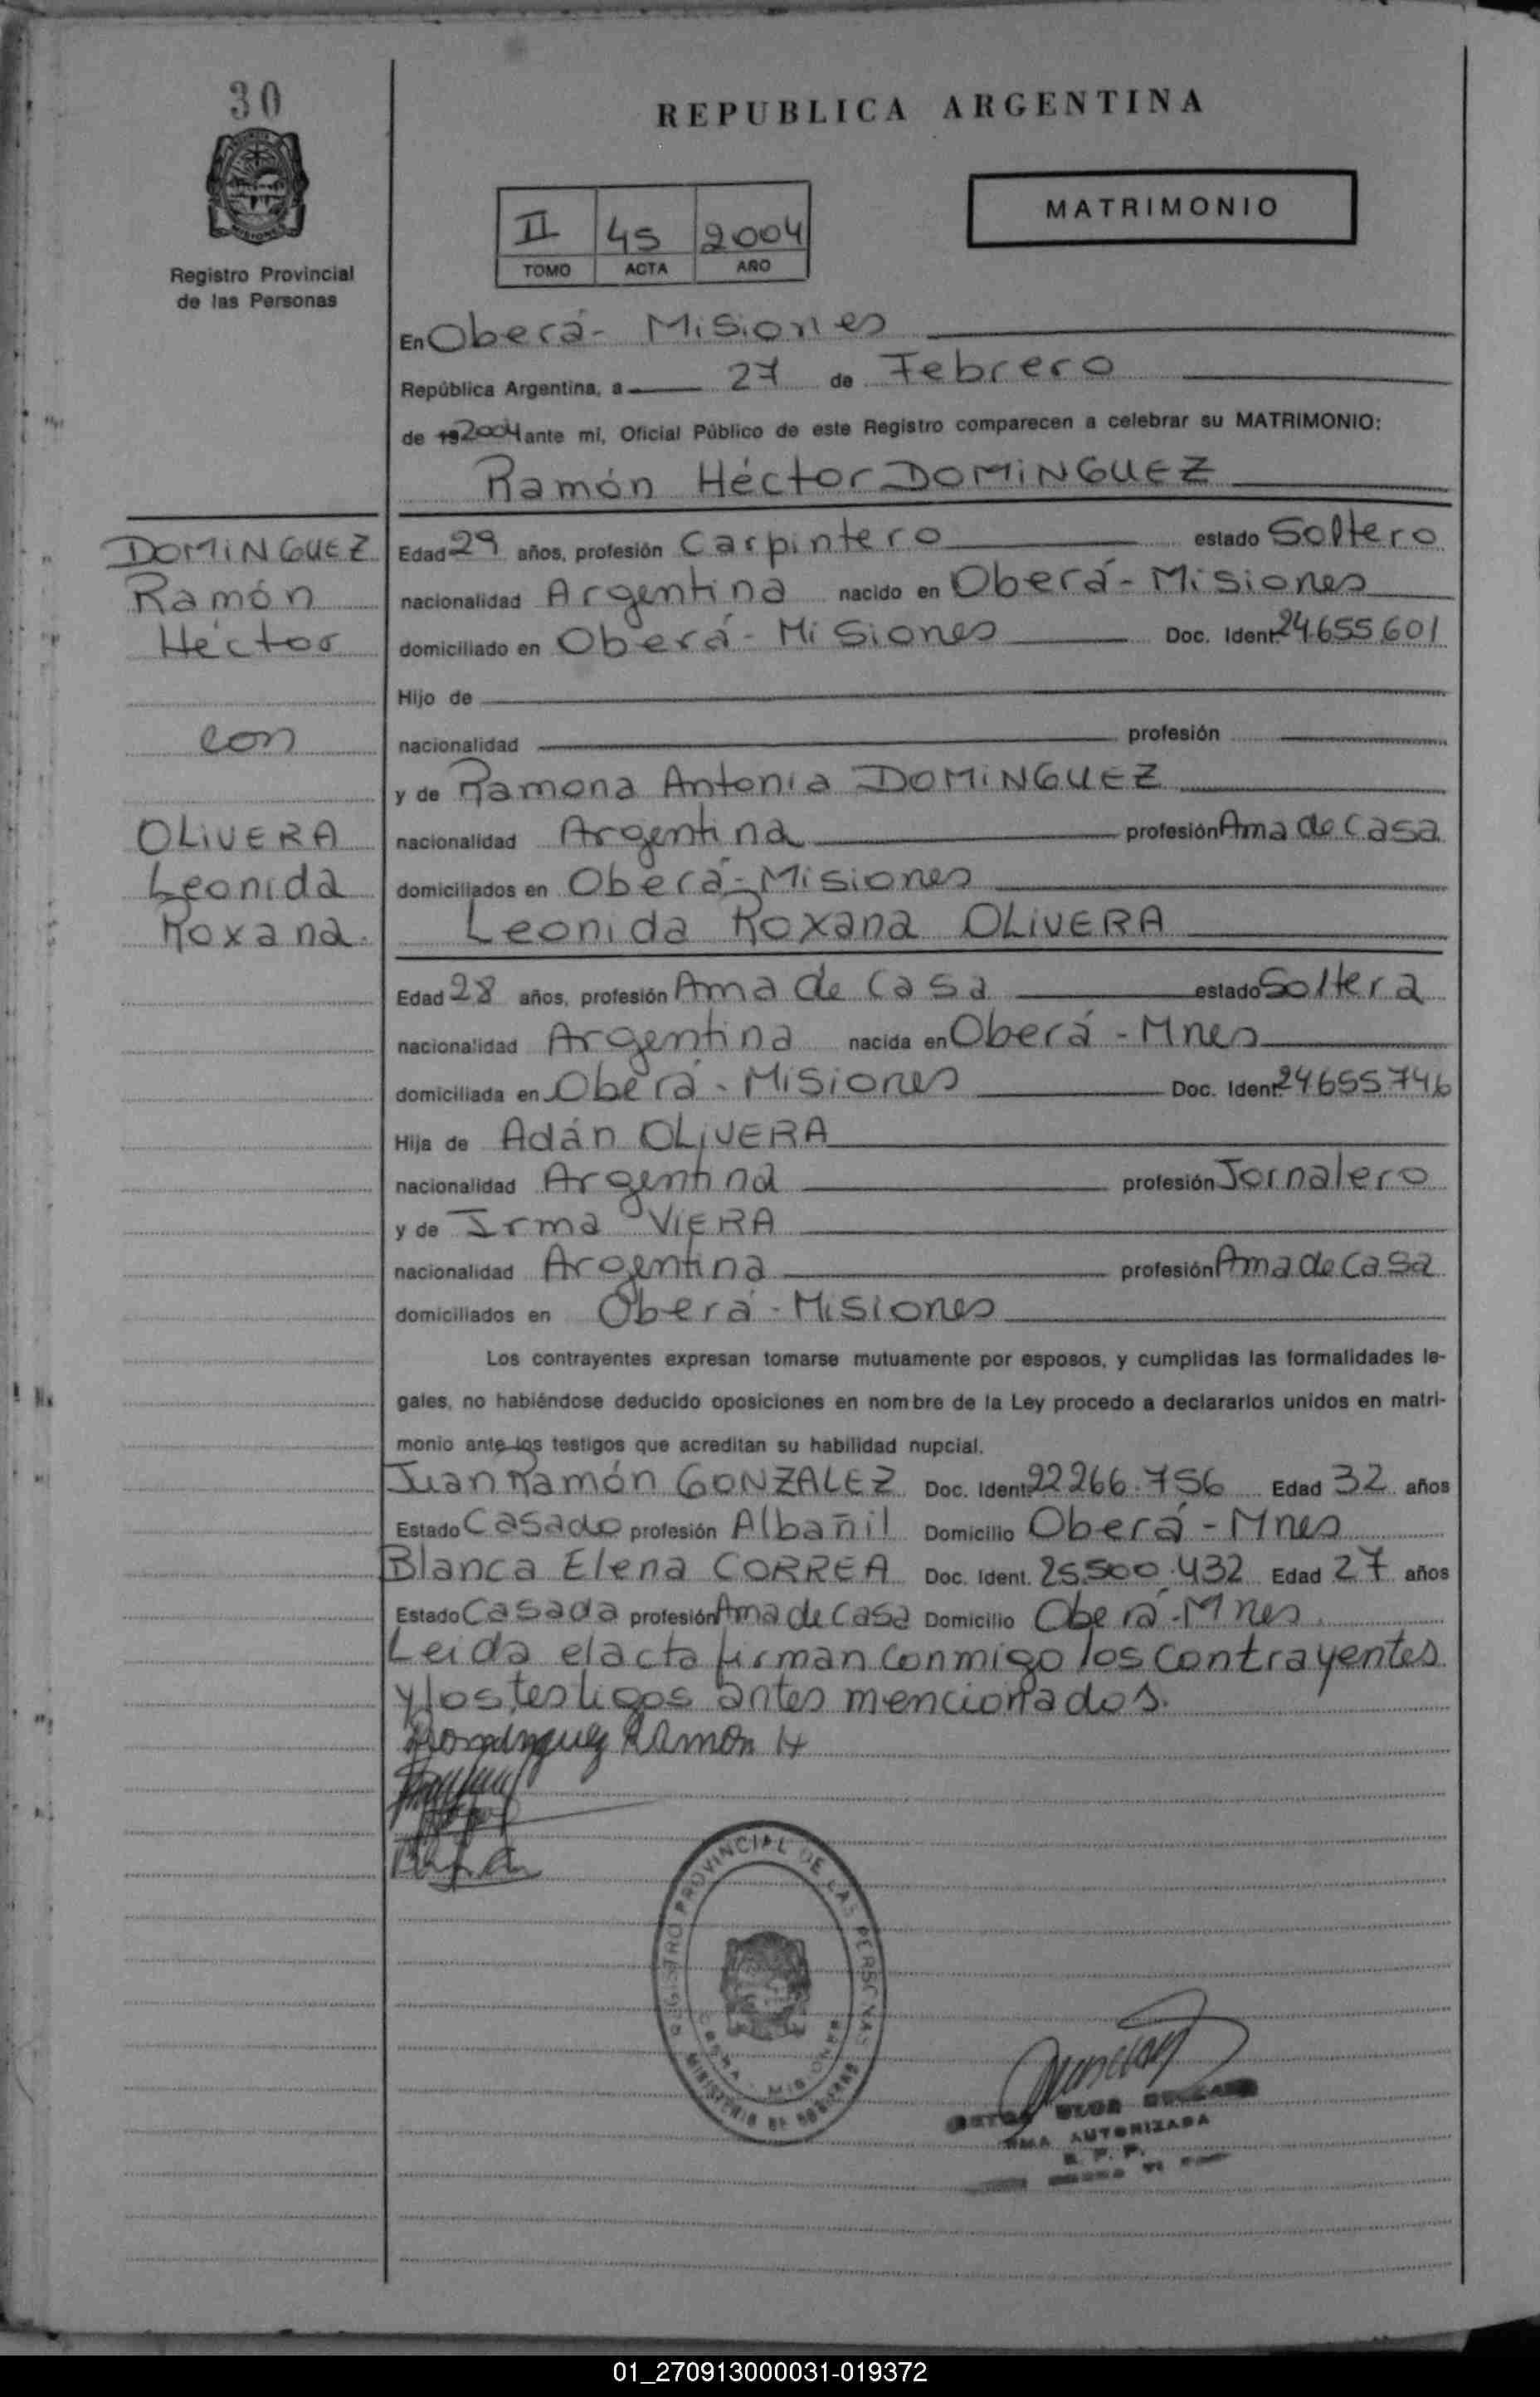 30
REPUBLICA ARGENTINA
MATRIMONIO
II 45 2004
TOMO ACTA AÑO
Registro Provincial
de las Personas
En Oberá - Misiones
República Argentina, a 27 de Febrero
de 19 2004 ante mi, Oficial Público de este Registro comparecen a celebrar su MATRIMONIO:
Ramón Héctor DOMINGUEZ
DOMINGUEZ
Ramón
Héctor
con
OLIVERA
Leonida
Roxana.
Edad 29 años, profesión Carpintero estado Soltero
nacionalidad Argentina nacido en Oberá - Misiones
domiciliado en Oberá - Misiones Doc. Ident. 24.655.601
Hijo de
nacionalidad profesión
y de Ramona Antonia DOMINGUEZ
nacionalidad Argentina profesión Ama de Casa
domiciliados en Oberá - Misiones
Leonida Roxana OLIVERA
Edad 28 años, profesión Ama de Casa estado Soltera
nacionalidad Argentina nacida en Oberá - Mnes
domiciliada en Oberá - Misiones Doc. Ident. 24.655.746
Hija de Adán OLIVERA
nacionalidad Argentina profesión Jornalero
y de Irma VIERA
nacionalidad Argentina profesión Ama de Casa
domiciliados en Oberá - Misiones
Los contrayentes expresan tomarse mutuamente por esposos, y cumplidas las formalidades le-
gales, no habiéndose deducido oposiciones en nombre de la Ley procedo a declararlos unidos en matri-
monio ante los testigos que acreditan su habilidad nupcial.
Juan Ramón GONZALEZ Doc. Ident. 22.266.756 Edad 32 años
Estado Casado profesión Albañil Domicilio Oberá - Mnes
Blanca Elena CORREA Doc. Ident. 25.500.432 Edad 27 años
Estado Casada profesión Ama de Casa Domicilio Oberá - Mnes.
Leida el acta firman conmigo los contrayentes
y los testigos antes mencionados.
Dominguez Ramon H
REGISTRO PROVINCIAL DE LAS PERSONAS
OBERA - MISIONES
MINISTERIO DE GOBIERNO
AUTORIZADA
R. P. P.
01_270913000031-019372